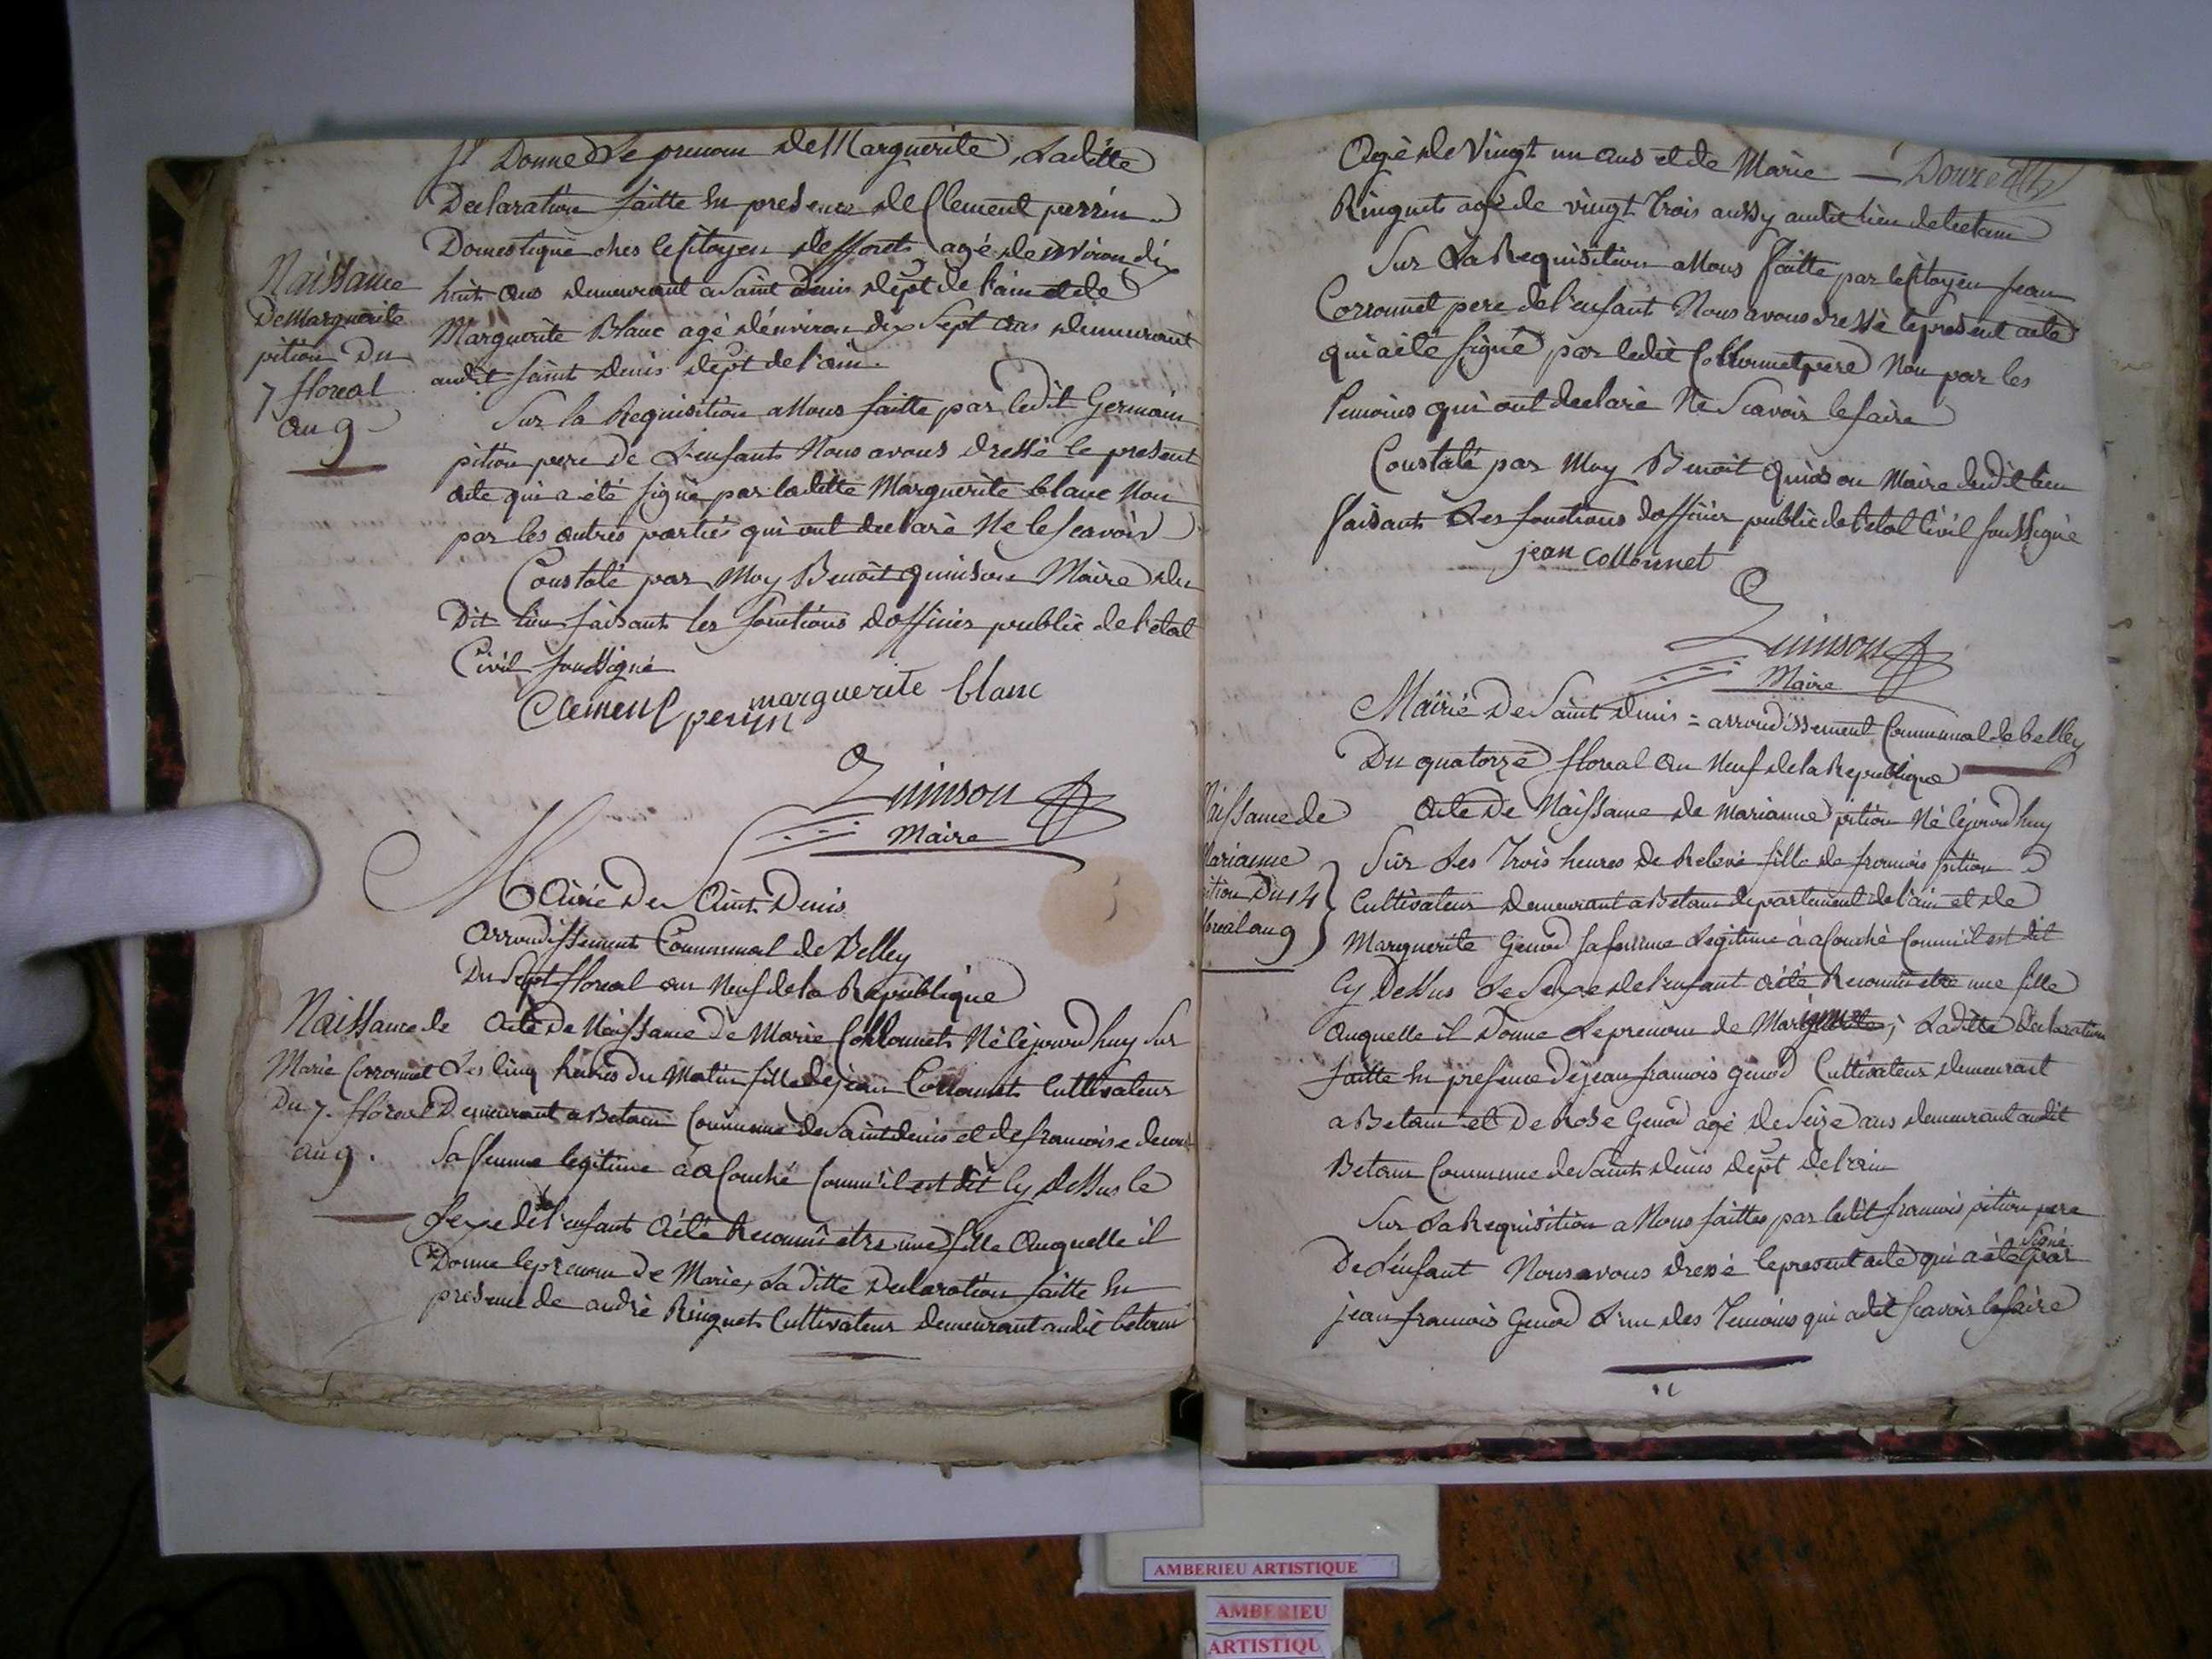 Il Donne Le prenom de Marguerite, Laditte
Declaration faitte En presence de Clement perrin
Domestique ches le Citoyen Defforets agé denviron dix
huit ans demeurant a Saint Denis dept de l'ain et de
Marguerite Blanc agé d'environ dix Sept ans demeurant
audit saint denis dept de l'ain.
Naissance
De Marguerite
pition Du
7 floreal
an 9
Sur la Requisition a Nous faitte par ledit Germain
pition pere de L'enfant Nous avons dressé le present
acte qui a été signé par laditte Marguerite blanc Non
par les autres parties qui ont declaré Ne le scavoir
Constaté par Moy Benoit quinson Maire du
Dit lieu faisant les fonctions dofficier public de l'etat
Civil soussigné
Clement perrin marguerite blanc
Quinson
Maire
Mairie De Saint Denis
arrondissement Communal de Belley
Du Sept floreal an Neuf de la Republique
Naissance de
Marie Corronnet
Du 7. floreal
an 9.
Acte De Naissance De Marie Collonnet Né cejourdhuy Sur
Les Cinq heures du Matin fille de jean Collonnet Cultivateur
Demeurant a Betans Commune de Saint denis et de francoise
Sa femme legitime a acouché Comm'il est dit Cy dessus le
Sexe de l'enfant a été Reconnû etre une fille auquelle il
Donne le prenom de Marie, La ditte Declaration faitte En
presence de andré Ringuet Cultivateur demeurant audit betans
Agé de Vingt un ans et de Marie — Douze
Ringuet agé de vingt Trois aussy audit lieu de betans
Sur La Requisition a Nous faitte par le Citoyen jean
Corronnet pere de l'enfant Nous avons dressé le present acte
qui a été signé par ledit Collonnet pere Non par les
Temoins qui ont declaré Ne Scavoir le faire
Constaté par Moy Benoit Quinson Maire dudit lieu
faisant Les fonctions dofficier public de l'etat Civil soussigné
jean collonnet
Quinson
Maire
Mairie De Saint Denis = arrondissement Communal de belley
Du quatorze floreal an Neuf de la Republique
Naissance de
Marianne
pition Du 14
floreal an 9
Acte De Naissance de Marianne pition Né cejourdhuy
Sur Les Trois heures de Relevé fille de francois pition
Cultivateur demeurant a Betans departement de l'ain et de
Marguerite Genod sa femme Legitime a acouché Comm'il est dit
Cy Dessus Le Sexe de l'enfant a été Reconnu etre une fille
auquelle il Donne Le prenom de Marianne; Laditte Declaration
faitte En presence de jean francois genod Cultivateur demeurant
a Betans et De Rose Genod agé de Seize ans demeurant audit
Betans Commune de Saint denis dept de l'ain
Sur La Requisition a Nous faittes par ledit francois pition pere
De L'enfant Nous avons dressé le present acte qui a été signé par
jean francois Genod L'un des Temoins qui a dit scavoir le faire
AMBERIEU ARTISTIQUE
AMBERIEU
ARTISTIQU